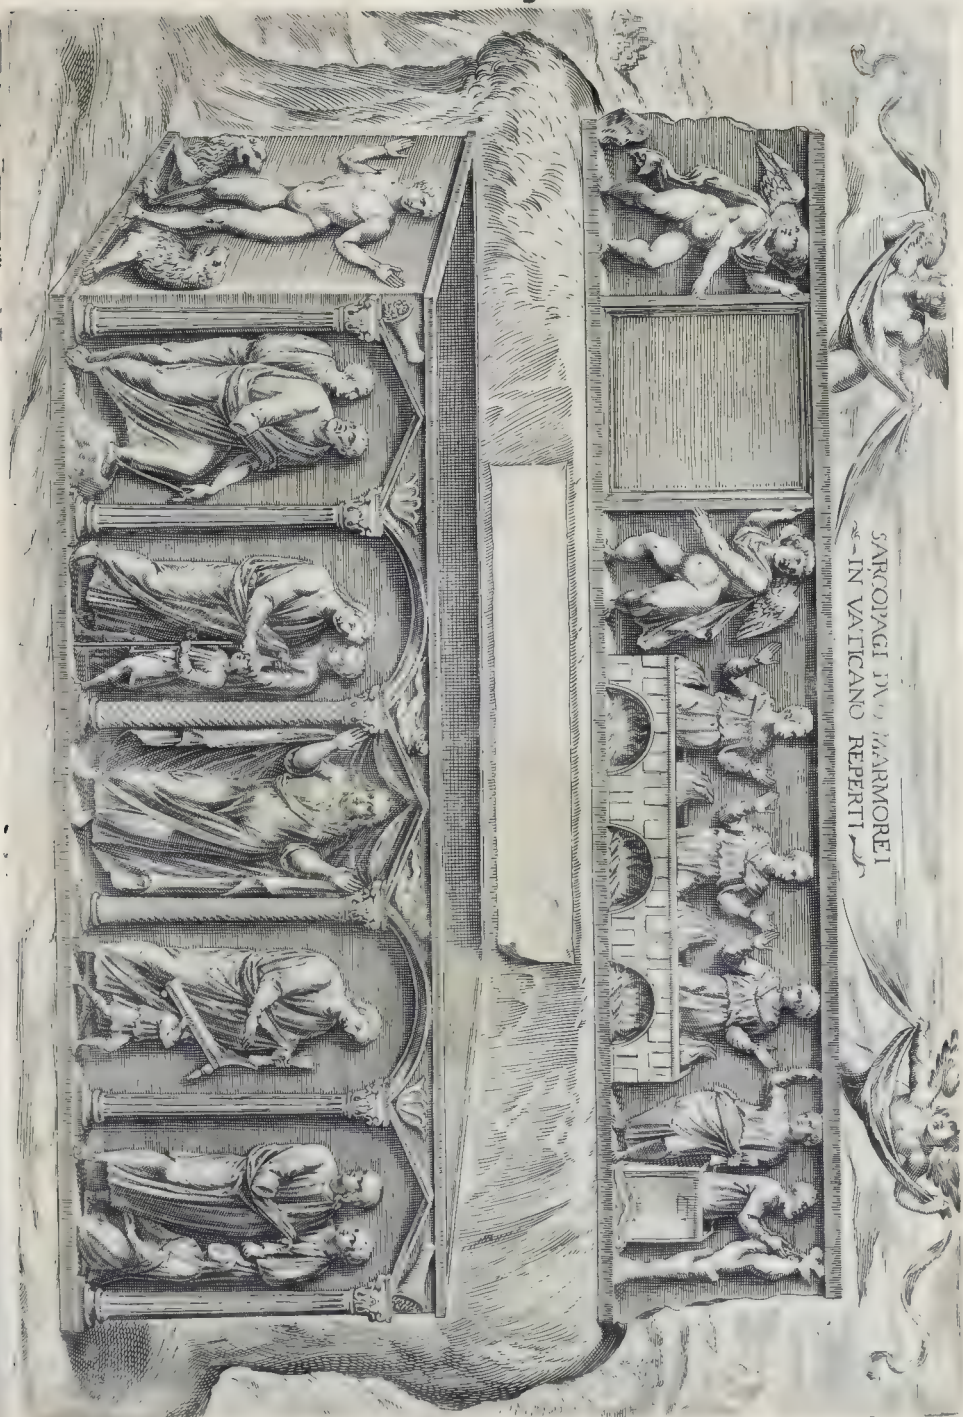 SARCOPAGI MARMOREI
IN VATICANO REPERTI